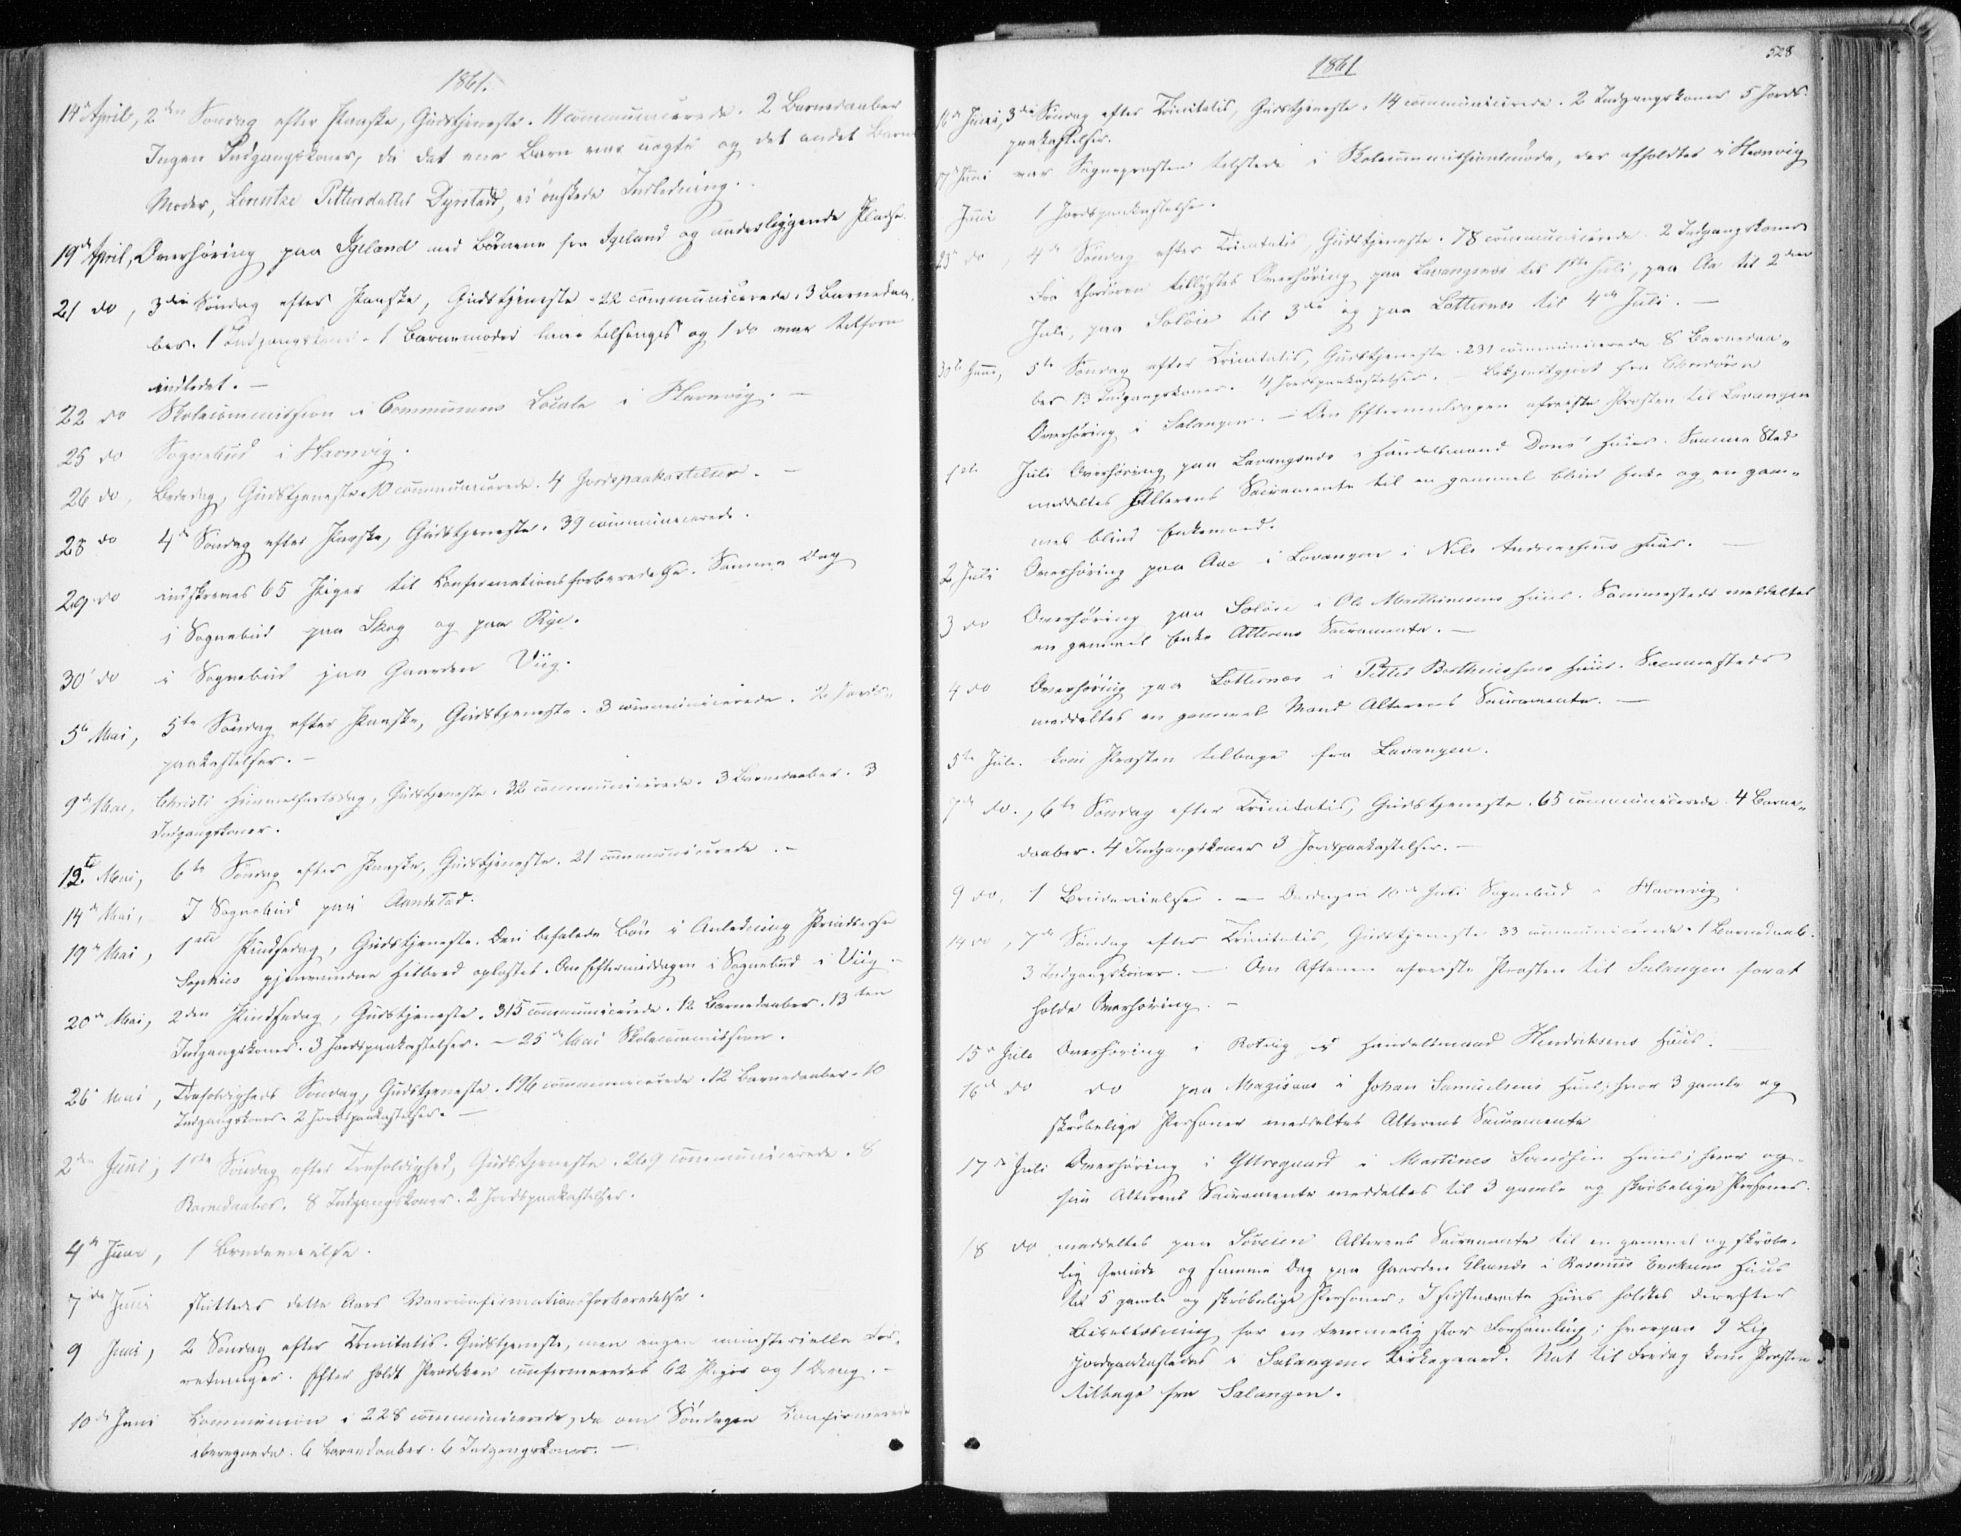 1861.
14de April, 2den Søndag efter Paaske, Gudstjeneste. 11 communicerede. 2 Barnedaaber
Ingen Indgangskoner, da det ene Barn var uægte og det andet Barns
Moder, Lorentze Pettersdatter Dyrstad, ei ønskede Indledning.
19de April, Overhøring paa Igeland med Børnene fra Igeland og underliggende Pladse.
21 do, 3die Søndag efter Paaske, Gudstjeneste. 22 communicerede. 3 Barnedaa-
ber. 1 Indgangskone. 1 Barnemoder laae tilsengs og 1 do var tilforn
indledet. —
22 do Skolecommission i Communens Locale i Havnvig. —
25 do Sognebud i Havnvig.
26 do, Bededag, Gudstjeneste. 10 communicerede. 4 Jordspaakastelser. —
28 do 4de Søndag efter Paaske, Gudstjeneste. 39 communicerede.
29 do indskreves 65 Piger til Confirmationsforberedelse. Samme Dag
i Sognebud paa Skog og paa Rye.
30 do i Sognebud paa Gaarden Viig.
5te Mai, 5te Søndag efter Paaske, Gudstjeneste. 3 communicerede. 2 Jords-
paakastelser. —
9de Mai, Christi Himmelfartsdag, Gudstjeneste. 32 communicerede. 3 Barnedaaber. 3
Indgangskoner.
12te Mai, 6te Søndag efter Paaske, Gudstjeneste. 21 communicerede. —
14de Mai, I Sognebud paa Aandstad.
19de Mai, 1ste Pindsedag, Gudstjeneste. Den befalede Bøn i Anledning Prindsesse
Sophies gjenvundne Helbred oplæstes. Om Eftermiddagen i Sognebud i Viig. —
20de Mai, 2den Pindsedag, Gudstjeneste. 315 communicerede. 12 Barnedaaber. 13
Indgangskoner. 3 Jordspaakastelser. — 25de Mai Skolecommission.
26 Mai, Trefoldigheds Søndag, Gudstjeneste. 196 communicerede. 12 Barnedaaber. 10
Indgangskoner. 2 Jordspaakastelser. —
2den Juni, 1ste Søndag efter Trefoldighed, Gudstjeneste. 269 communicerede. 8
Barnedaaber. 8 Indgangskoner. 2 Jordspaakastelser.
4de Juni, 1 Brudevielse.
7de Juni sluttedes dette Aars Vaarconfirmationsforberedelse.
9 Juni, 2 Søndag efter Trinitatis. Gudstjeneste, men ingen ministerielle For-
retninger. Efter holdt Prædiken confirmeredes 62 Piger og 1 Dreng. —
10de Juni Communion i 228 communicerede, de om Søndagen Confirmerede
iberegnede. 6 Barnedaaber. 6 Indgangskoner. —
1861
528
16de Juni, 3die Søndag efter Trinitatis, Gudstjeneste. 14 communicerede. 2 Indgangskoner 5 Jords-
paakastelser.
17 Juni var Sognepræsten tilstede i Skolecommissionsmøde, der afholdtes i Havnvig
Juni 1 Jordspaakastelse.
23 do, 4de Søndag efter Trinitatis, Gudstjeneste. 78 communicerede. 2 Indgangskoner
Fra Chordøren tillystes Overhøring paa Lavangsnæs til 1ste Juli, paa Aa til 2den
Juli, paa Soløie til 3die og paa Lotternæs til 4de Juli. —
30te Juni, 5te Søndag efter Trinitatis, Gudstjeneste. 231 communicerede 8 Barnedaa-
ber 13 Indgangskoner. 4 Jordspaakastelser. — Bekjendtgjort fra Chordøren
Overhøring i Salangen. — Om Eftermiddagen afreiste Præsten til Lavangen
1ste Juli Overhøring paa Lavangsnæs i Handelsmand Dons' Huus. Samme Sted
meddeltes Alterens Sacramente til en gammel blind Enke og en gam-
mel blind Enkemand.
2 Juli Overhøring paa Aae i Lavangen i Nils Andreassens Huus. —
3 do Overhøring paa Soløie i Ole Mathisens Huus. Sammesteds meddeltes
en gammel Enke Alterens Sacramente. —
4 do Overhøring paa Lotternæs i Petter Berthinsens Huus. Sammesteds
meddeltes en gammel Mand Alterens Sacramente. —
5te Juli. kom Præsten tilbage fra Lavangen.
7de do., 6te Søndag efter Trinitatis, Gudstjeneste. 65 communicerede. 4 Barne-
daaber. 4 Indgangskoner 3 Jordspaakastelser. —
9 do, 1 Brudevielse. — Onsdagen 10de Juli Sognebud i Havnvig.
14 do, 7de Søndag efter Trinitatis, Gudstjeneste 33 communicerede. 1 Barnedaab.
3 Indgangskoner. — Om Aftenen afreiste Præsten til Salangen forat
holde Overhøring. —
15de Juli Overhøring i Rotvig i Handelsmand Hendriksens Huus. —
16de do do paa Magisnæs i Johan Samuelsens Huus; hvor 3 gamle og
skrøbelige Personer meddeltes Alterens Sacramente
17de Juli Overhøring i Yttregaard i Martines Huus; hvor og-
saa Alterens Sacramente meddeltes til 3 gamle og skrøbelige Personer.
18 do meddeltes paa Søveien Alterens Sacramente til en gammel og skrøbe-
lig Qvinde og samme Dag paa Gaarden Elvenes i Rasmus Huus
til 5 gamle og skrøbelige Personer. I sidstnævnte Huus holdtes derefter
Bibellæsning for en temmelig stor Forsamling; hvorpaa 9 Lig
jordpaakastedes i Salangens Kirkegaard. Nat til Fredag kom Præsten
tilbage fra Salangen.